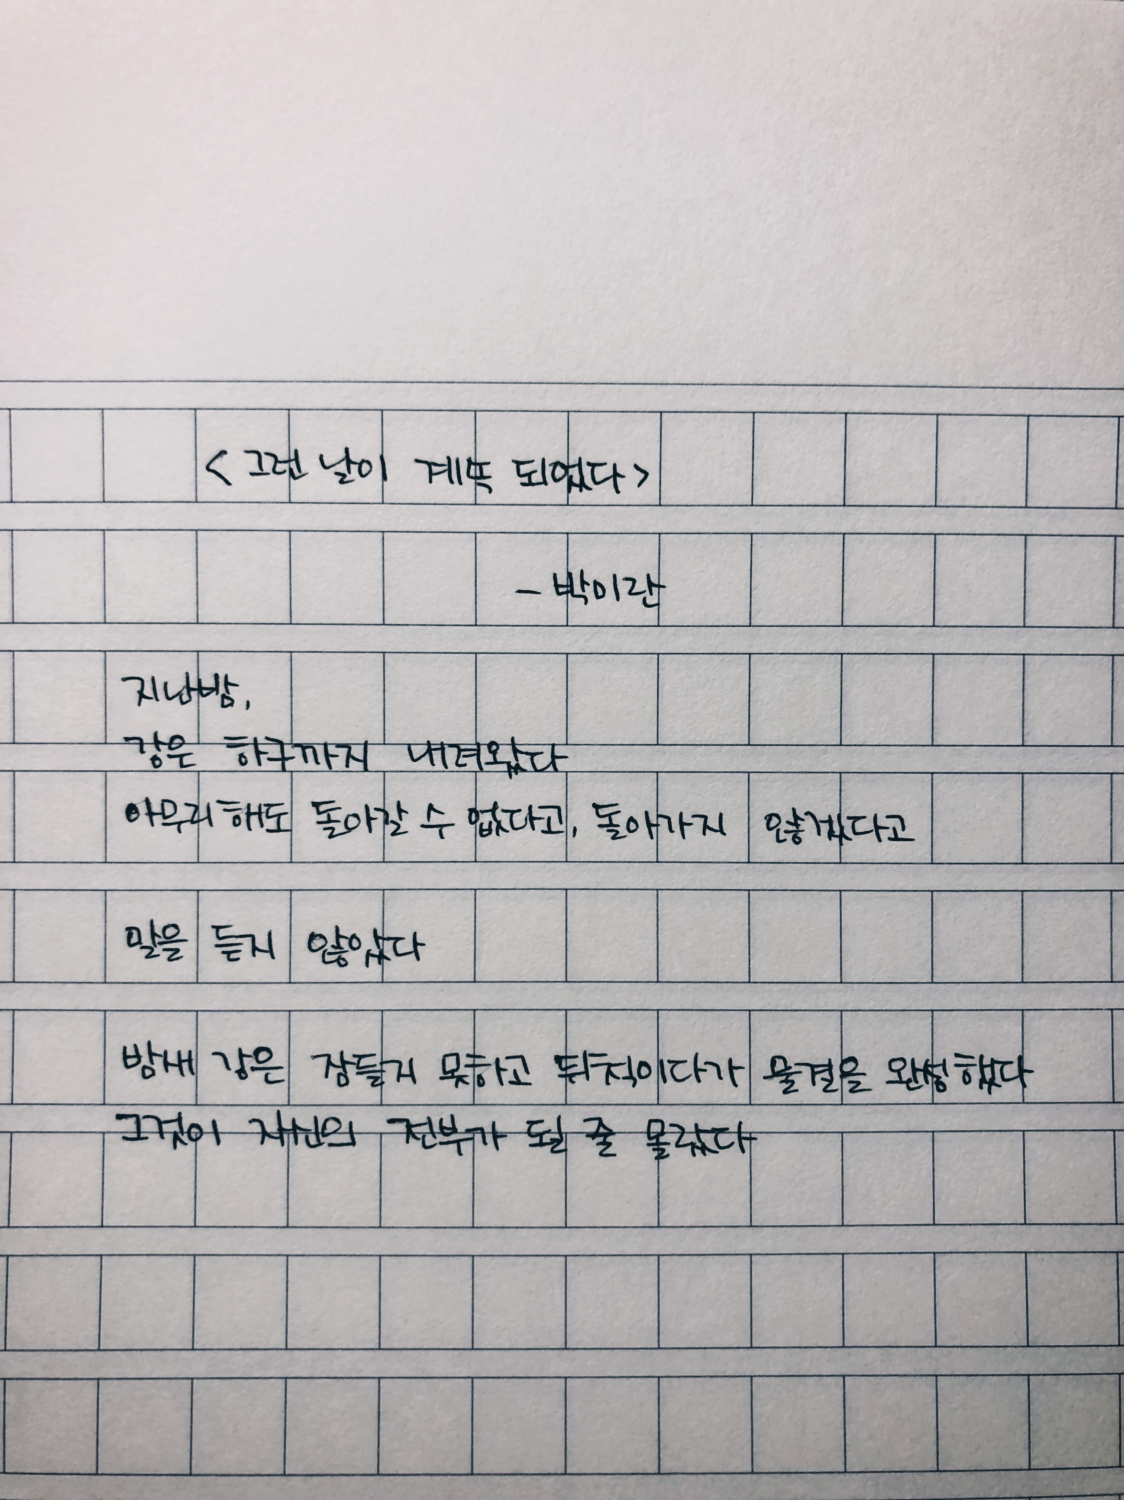 <그런 날이 계속 되었다>
- 박이란
지난밤,
강은 하구까지 내려왔다
아무리 해도 돌아갈 수 없다고, 돌아가지 않겠다고
말을 듣지 않았다
밤새 강은 잠들지 못하고 뒤척이다가 물결을 완성했다
그것이 자신의 전부가 될 줄 몰랐다